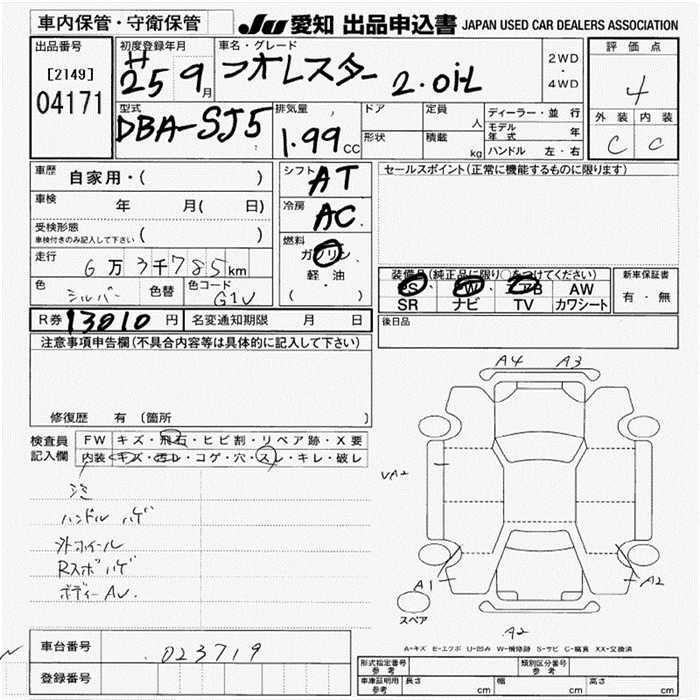 車内保管・守衛保管
JU 愛知 出品申込書 JAPAN USED CAR DEALERS ASSOCIATION
出品番号
[2149]
04171
初度登録年月
H
25 9 月
車名・グレード
フォレスター 2.0iL
2WD
・
4WD
評価点
4
外装 内装
C C
型式
DBA-SJ5
排気量
1.99 CC
ドア
形状
定員
人
積載
kg
ディーラー・並行
モデル年式 年
ハンドル 左・右
車歴
自家用・( )
車検
年 月( 日)
受検形態
車検付きのみ記入して下さい ( )
走行
6万3千785km
色
シルバー
色替
色コード
G1U
シフト
AT
冷房
AC
燃料
ガソリン
軽・油
( ・ )
セールスポイント(正常に機能するものに限ります)
装備品(純正品に限り○をつけてください)
PS PW エアB AW
SR ナビ TV カワシート
新車保証書
有・無
後日品
R券 13010 円
名変通知期限 月 日
注意事項申告欄(不具合内容等は具体的に記入して下さい)
修復歴 有〔箇所 〕
検査員
記入欄
FW キズ・飛石・ヒビ割・リペア跡・X要
内装 キズ・汚レ・コゲ・穴・スレ・キレ・破レ
注
ハンドル ハゲ
外ホイール
Rスポハゲ
ボディーAU.
A4 A3
UA2
A1
A2
スペア
A2
A-キズ E-エクボ U-凹み W-補修跡 S-サビ C-腐食 XX-交換済
車台番号
023719
登録番号
形式指定番号
参考
類別区分番号
参考
車庫証明用
参考
長さ cm
幅 cm
高さ cm